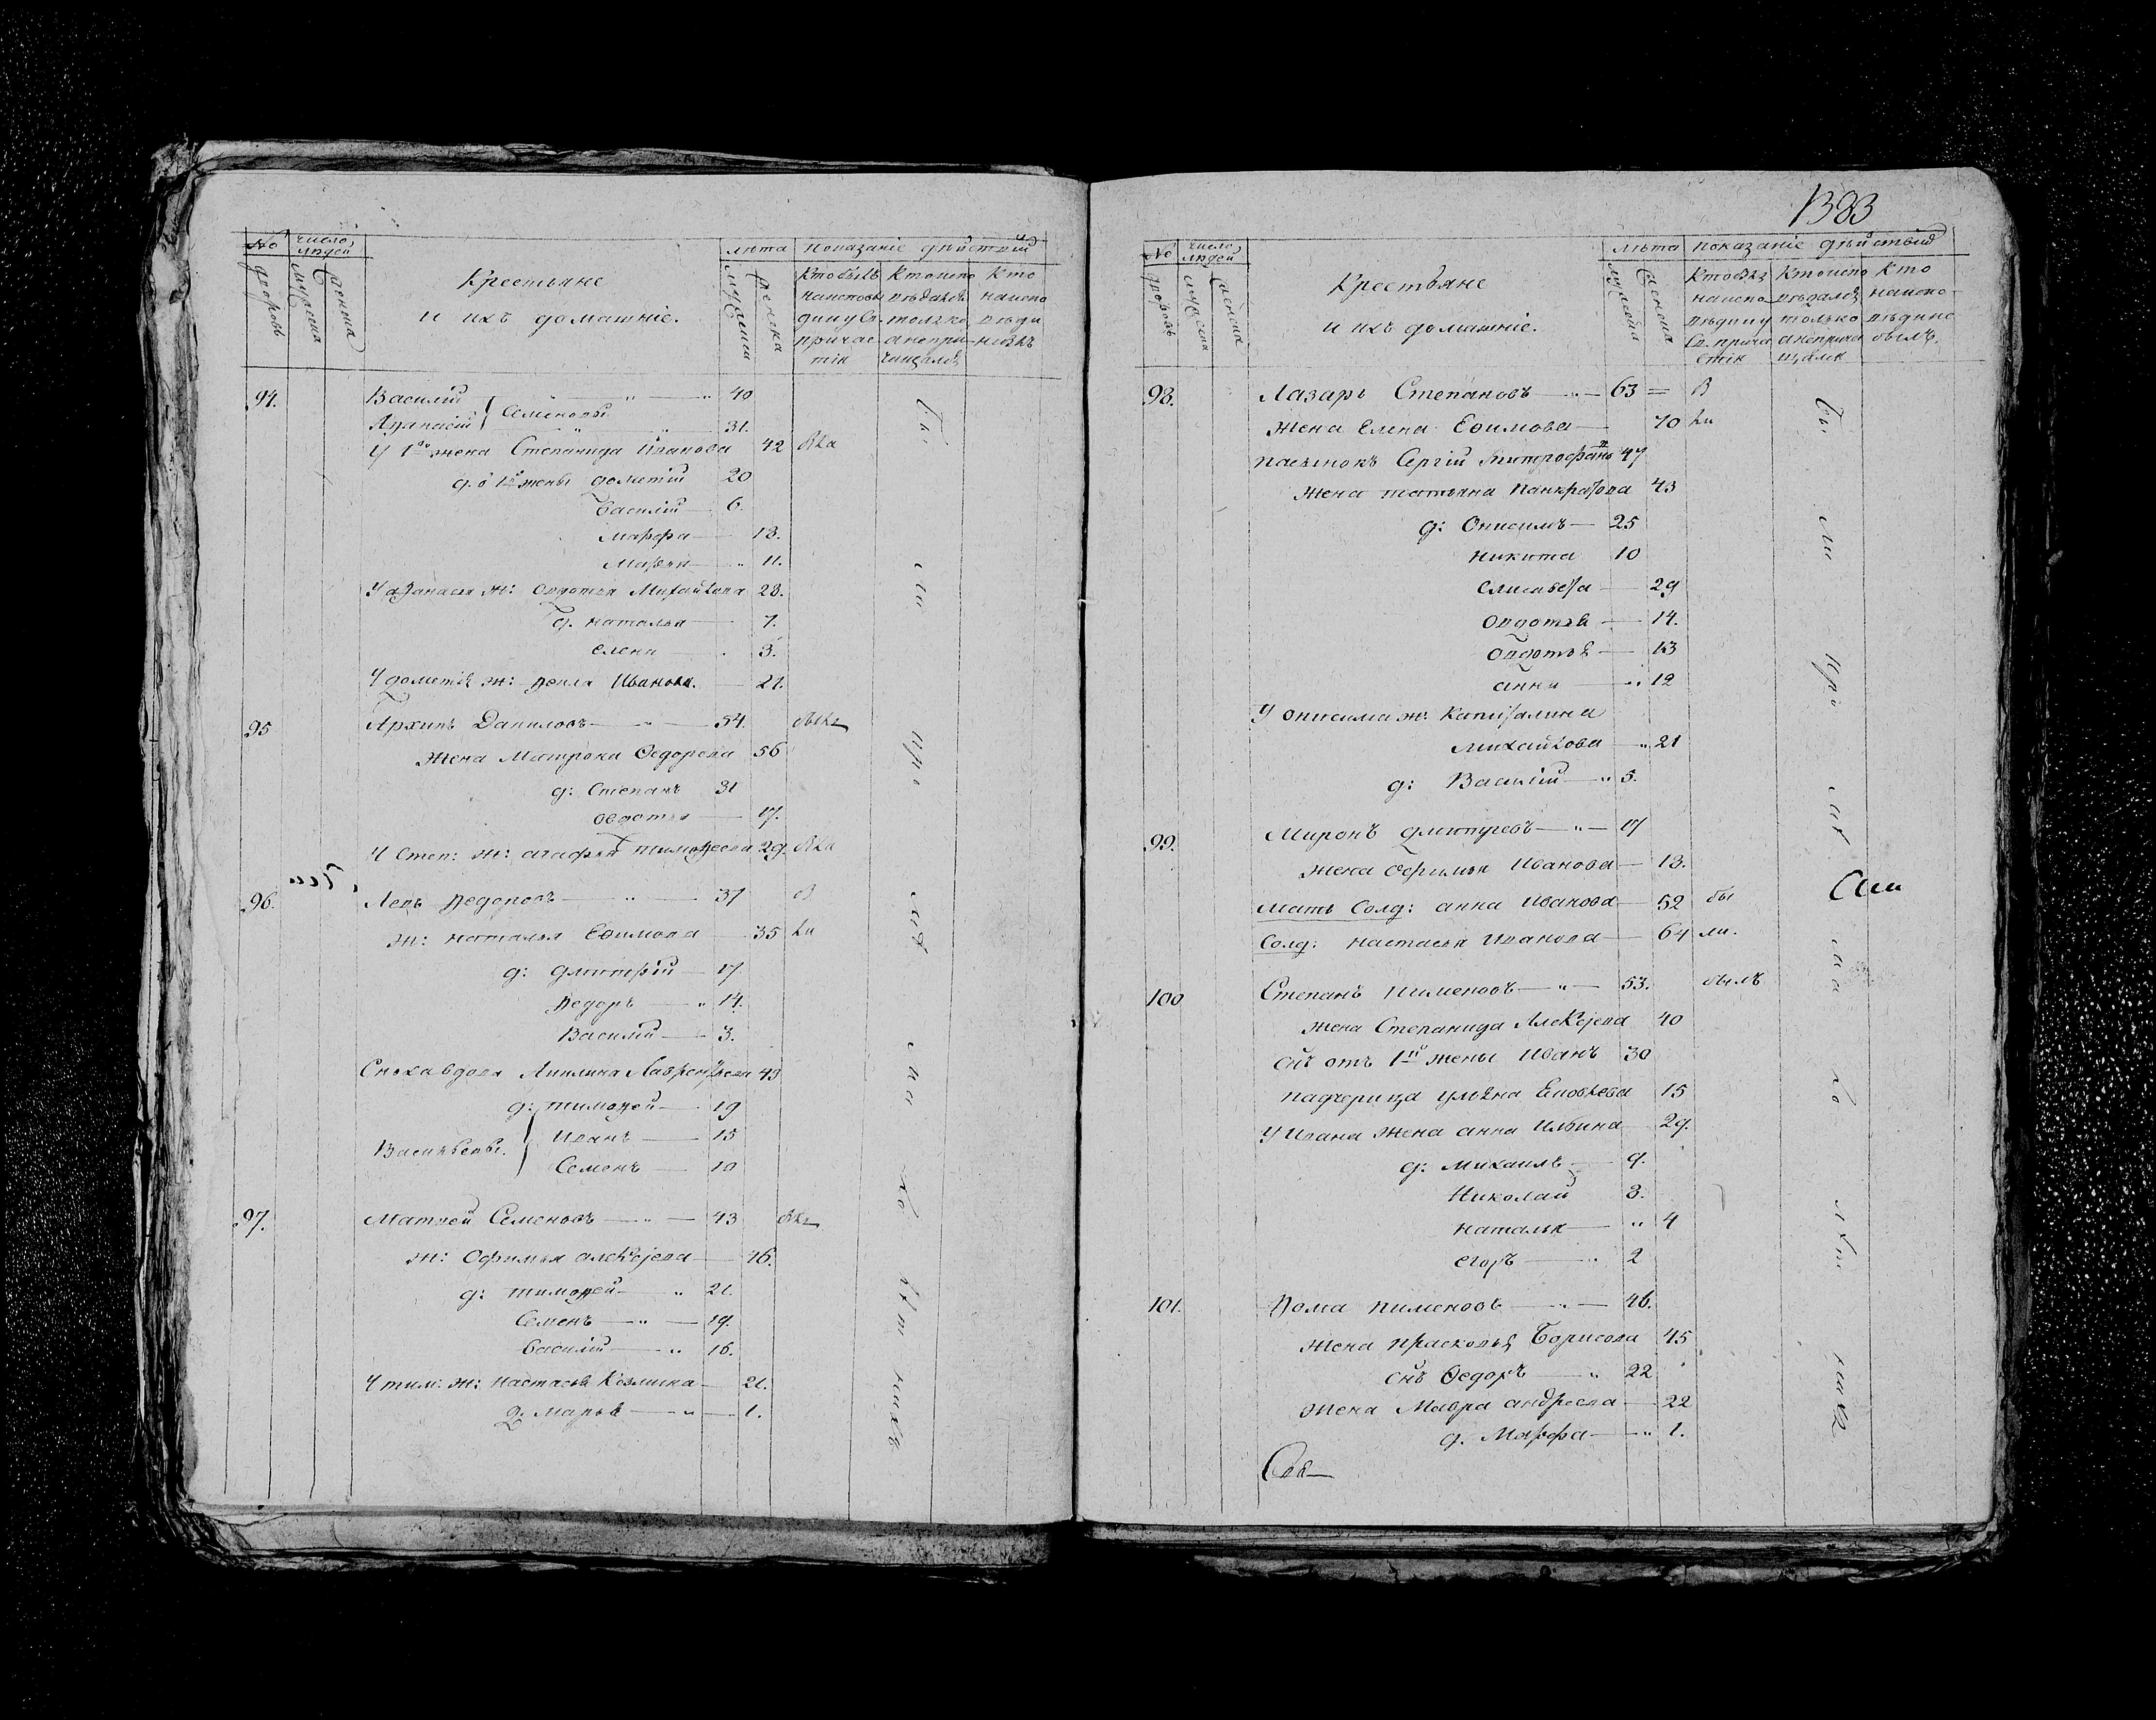 № дворовъ
число людей
мужеска
женска
Крестьяне
и ихъ домашніе.
лѣта
мужескіи
женска
показаніе дѣйствій
Кто былъ на исповѣди у Св. причастія
Кто исповѣдался толко а не причащался
Кто на исповѣди не былъ
94. Василій " " 40
Аѳанасій } Семеновы " " 31.
У 1го жена Степанида Иванова 42
д. о 1й жены дометій 20
Василій 6.
Марфа 13.
Марья " 11.
У аѳанасья ж: Овдотья Михайлова 28.
д. наталья 7.
елена 3.
У дометія ж: ѳекла Иванова. 21.
95 Архипъ Даниловъ " 54.
Жена Матрона Ѳедорова 56
д: Степанъ 31
овдотья 17.
У Степ: ж: агафья тимоѳеева 29.
96. Левъ ѳедоровъ " 37
ж: наталья Ефимова 35
д: дмитрій 17
ѳедоръ " 14.
Василій 3.
Сноха вдова Акилина Лаврентьева 43
д: тимоѳей 19
Васильевы. } Иванъ 15
Семенъ 10
97. Матвей Семеновъ " 43
ж: Офимья алексѣева 46.
д: тимоѳей " 21.
Семенъ " 19.
Василій " 16.
У тим: ж: настасья Козмина 21.
д: Марья " 1.
1383
№ дворовъ
число людей
мужеска
женска
Крестьяне
и ихъ домашніе.
лѣта
мужеска
женска
показаніе дѣйствій
Кто былъ на исповѣди у Св. причастія
Кто исповѣдался только а не причащался
Кто на исповѣди не былъ.
98. Лазарь Степановъ " 63
Жена Елена Ефимова 70
пасынокъ Сергій Митрофановъ 47
Жена татьяна Панкратова 43
д: Онисимъ 25
никита 10
елисавета 29
овдотья 14.
овдотья 13
анна " 12
У онисима ж: Катиралина
михайлова " 21
д: Василій " 5.
99. Миронъ дмитріевъ " 17
жена Офимья Иванова 18.
Мать Солд: анна Иванова 52 бы
Солд: настасья Иванова 64 ли.
100 Степанъ пименовъ " 53. былъ
жена Степанида Алексѣева 40
снъ отъ 1й жены Иванъ 30
падчерица ульяна 15
У Ивана жена анна Ильина 29.
д: михаилъ 9.
Николай 3.
наталья " 4
егоръ " 2
101. ѳома пименовъ " 46.
жена прасковья Борисова 45
снъ Ѳедоръ " 22
жена Мавра андреева 22
д. Марфа " 1.